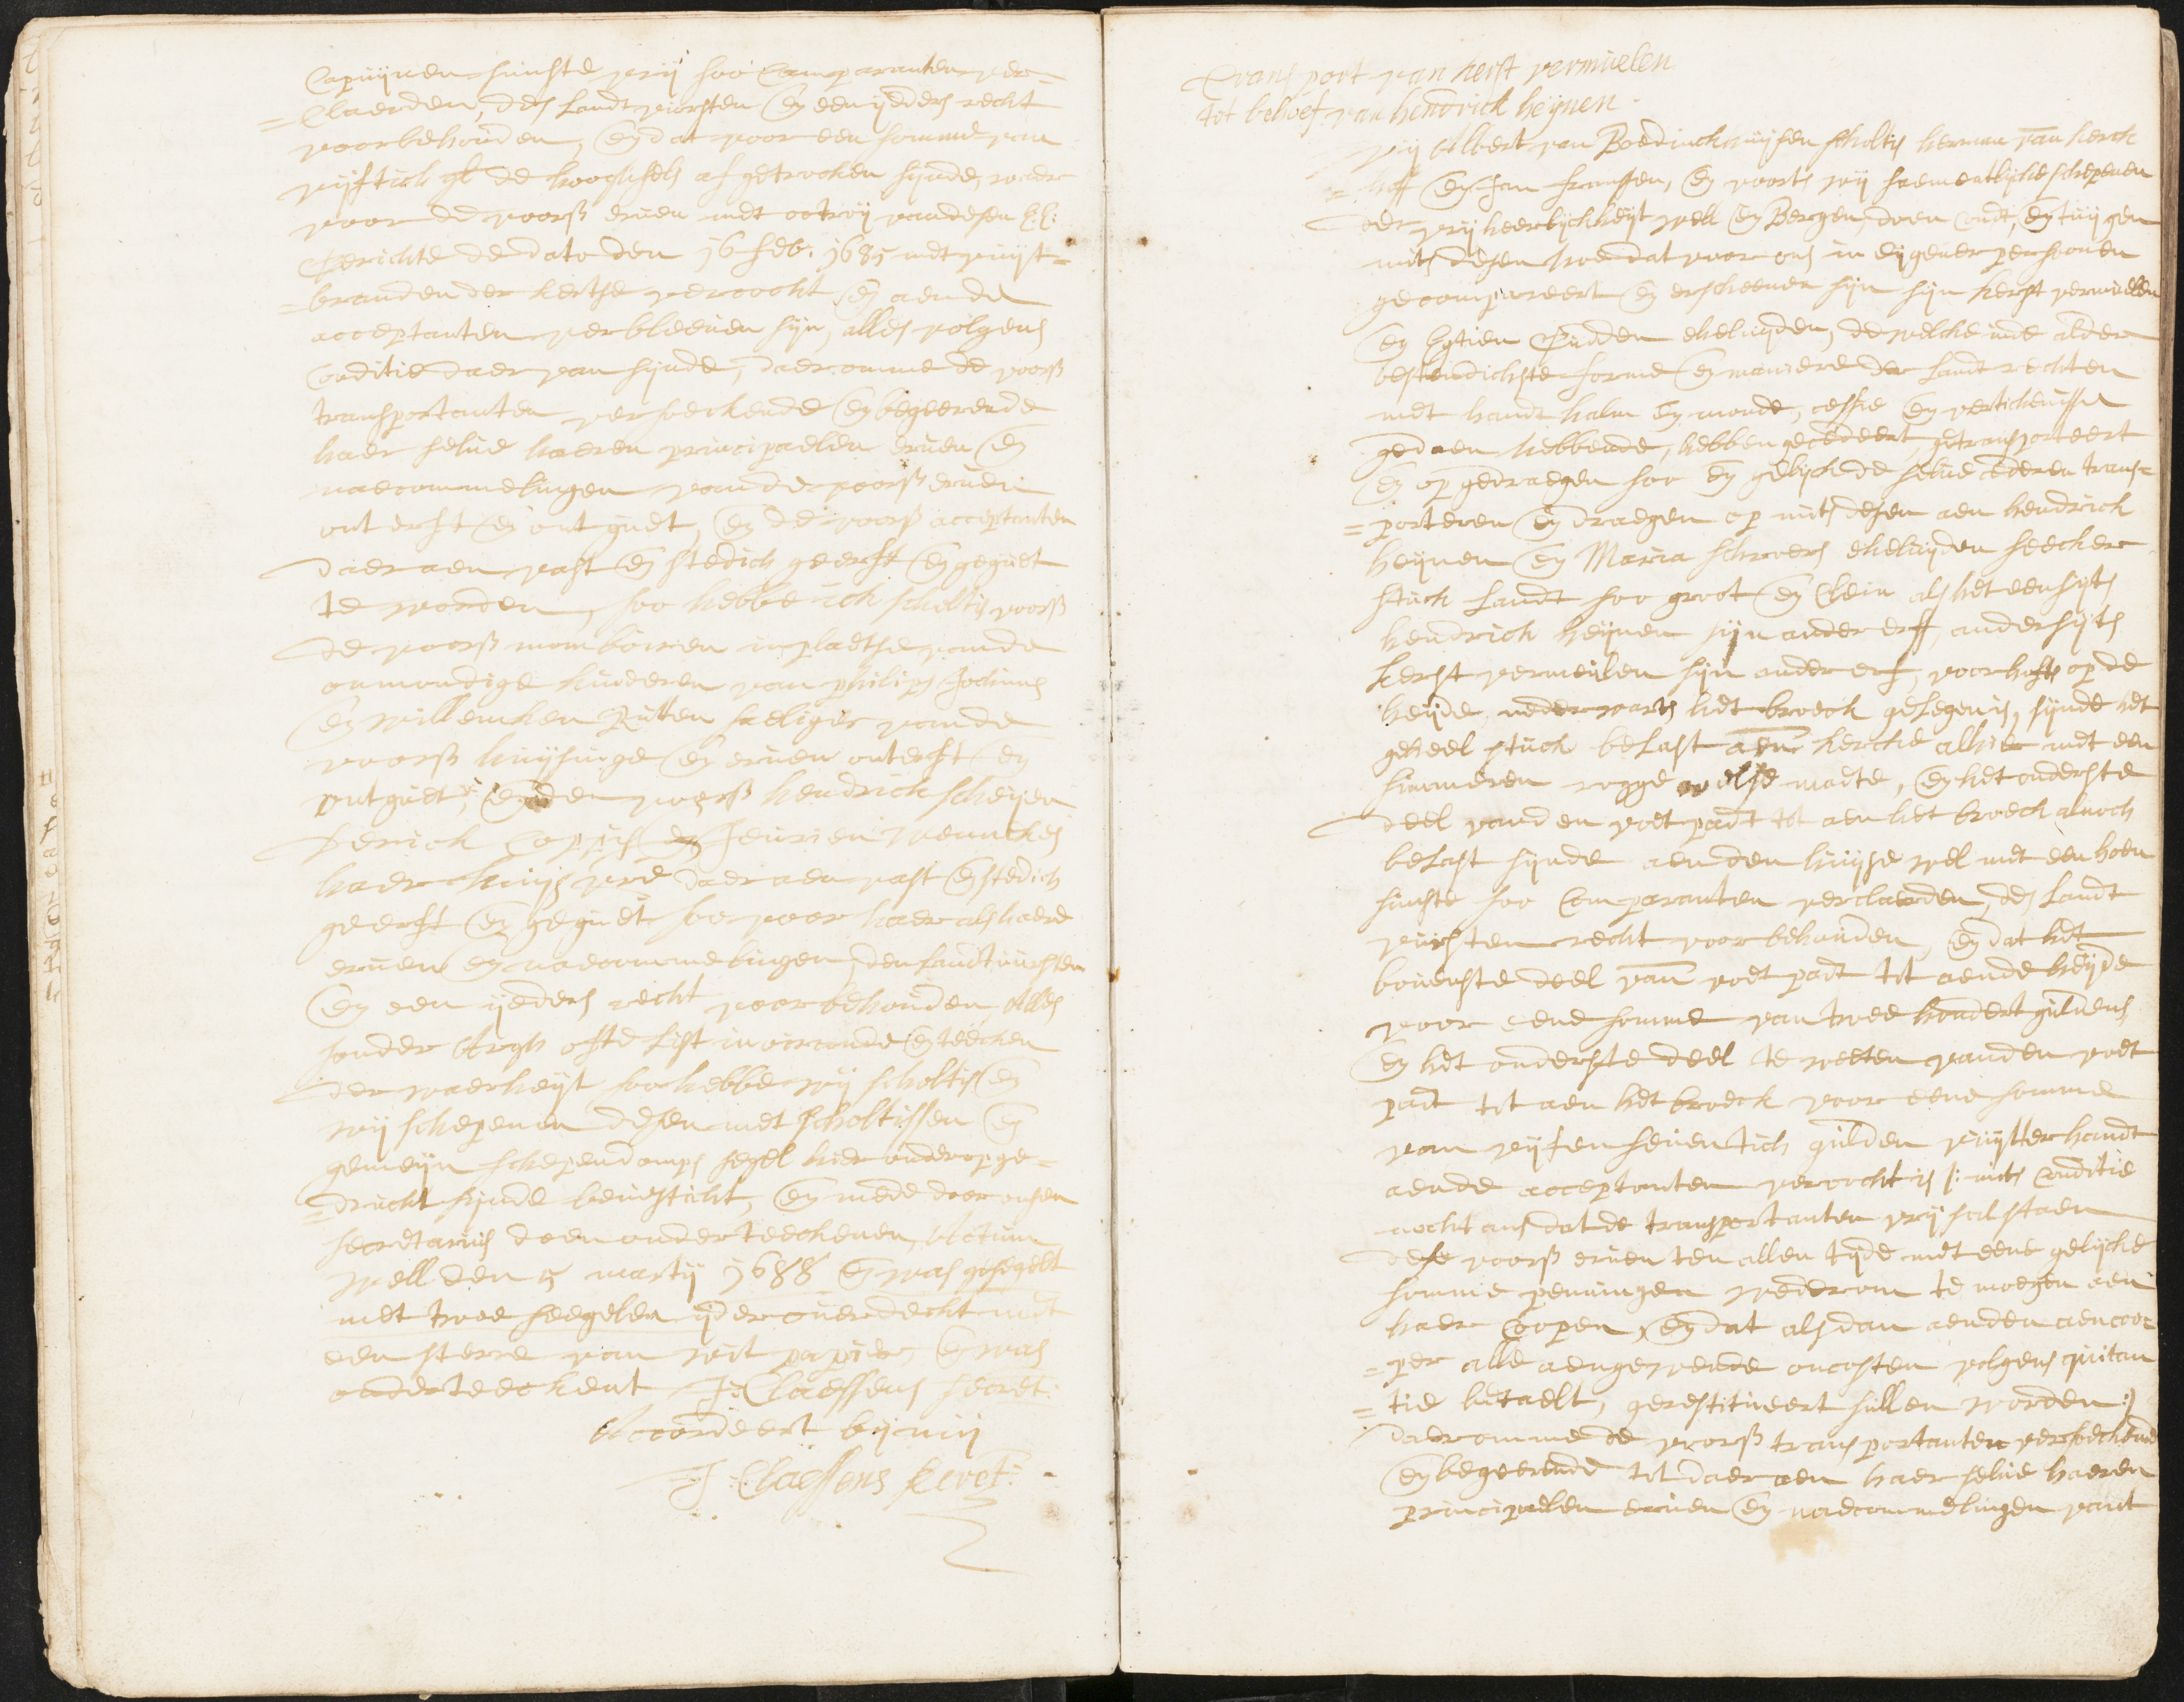 Capuijnen sunste vrij soo Comparanten ver=
=claerden, des Landt vursten en een ijeders recht
voorbehouden, en dat voor een somme van
vijftich gl de hooghsels af getrocken sijnde, waer
voor de voorß erven met octroij van desen E: E:
Gerichte de dato den 16 feb. 1685 met vuijt=
=branden der kertse vercocht en aen de
acceptanten verbleeven sijn, alles volgens
Conditie daer van sijnde, daeromme de voorß
transportanten versoeckende en begeerende
haer selve haeren principaelen erven en
naecommelingen van de voorß erven
ont erft en ont guet, en de voorß acceptanten
daer aen vast en stedich geerft en geguet
te worden, soo hebbe ich scholtis voorß
de voorß momboiren in plaetse van de
onmondige kinderen van philips Jochims
en willemken Rutten saeliger van de
voorß huijsinge en erven onterft en
ontguet, en den voorß hendrick scheijen
Derick Coppis en Jeurien
haer huijs vrê daer aen vast en stedich
geerft en geguet soo voor haer als haere
erven en naecommelingen, den landtvursten
en een ijeders recht voorbehouden Alles
sonder Argh ofte List in oirconde en teecken
der waerheijt soo hebbe wij scholtis en
wij schepenen desen met scholtissen en
gemeijn schependomps segel hier onder op ge=
=druckt sijnde bevesticht, en mede door onsen
secretarius doen onderteeckenen, Actum
Well den 5 martij 1688 en was gesegelt
met twee seegelen ijder overdeckt met
een sterre van wit papier, en was
onderteeckent J: Claessens secret:
Accordeert bij mij
J: Claessens secret:
Transport van kerst vermuelen
tot behoef van hendrick heijnen.
Wij Albert van Boedinckhuijsen scholtis herman van kerck
=hoff en Jan franssen, en voorts wij saementlijcke schepenen
der vrij heerlijckheijt well en Bergen, doen cont, en tuijgen
mits desen hoe dat voor ons in eijgener persoonen
gecompareert en erscheenen sijn sijn kerst vermuelen
en ehelujden, de welcke inde alder
bestendichste forme en maniere der Landt rechten
met handt halm en monde, cessie en vertichenisse
gedaen hebbende, hebben gecedeert, getransporteert
en op gedraegen soo en gelijck de selve cederen trans=
=porteren en draegen op mits desen aen hendrick
heijnen en Maria schroers ehelujden seecker
stuck Landt soo groot en Clein als het eensijts
hendrick heijnen sijn ander erff, andersijts
kerst vermeulen sijn ander erf, voorhofts op de
heijde nederwarts het broeck gelegen is, sijnde het
geheel stuck belast aen kercke alhier met een
simmeren rogge welse maete, en het onderste
deel van den voetpadt tot aen het broeck alnoch
belast sijnde aen den huijse wel met een hoen
sunste soo Comparanten verclaerden, des Landt
vursten recht voorbehouden, en dat het
bovenste deel van voet padt tot aen de heijde
voor eene somme van twee hondert guldens
en het onderste deel te weeten van den voet
padt tot aen het broeck voor eene somme
van vijfen seventich gulden vuijtter handt
aen de acceptanten vercocht is /: mits Conditie
nochtans dat de transportanten vrij sal staen
dese voorß erven ten allen tijde met eene gelijcke
somme penningen wederom te moegen aen
haer Coopen, en dat alsdan aenden aencoo=
=per alle aengewende oncosten volgens quitan
=tie betaelt, gerestitueert sullen worden :/
daeromme de voorß transportanten versoeckende
en begeerende tot daer aen haer selve haeren
principaelen erven en naecommelingen vant